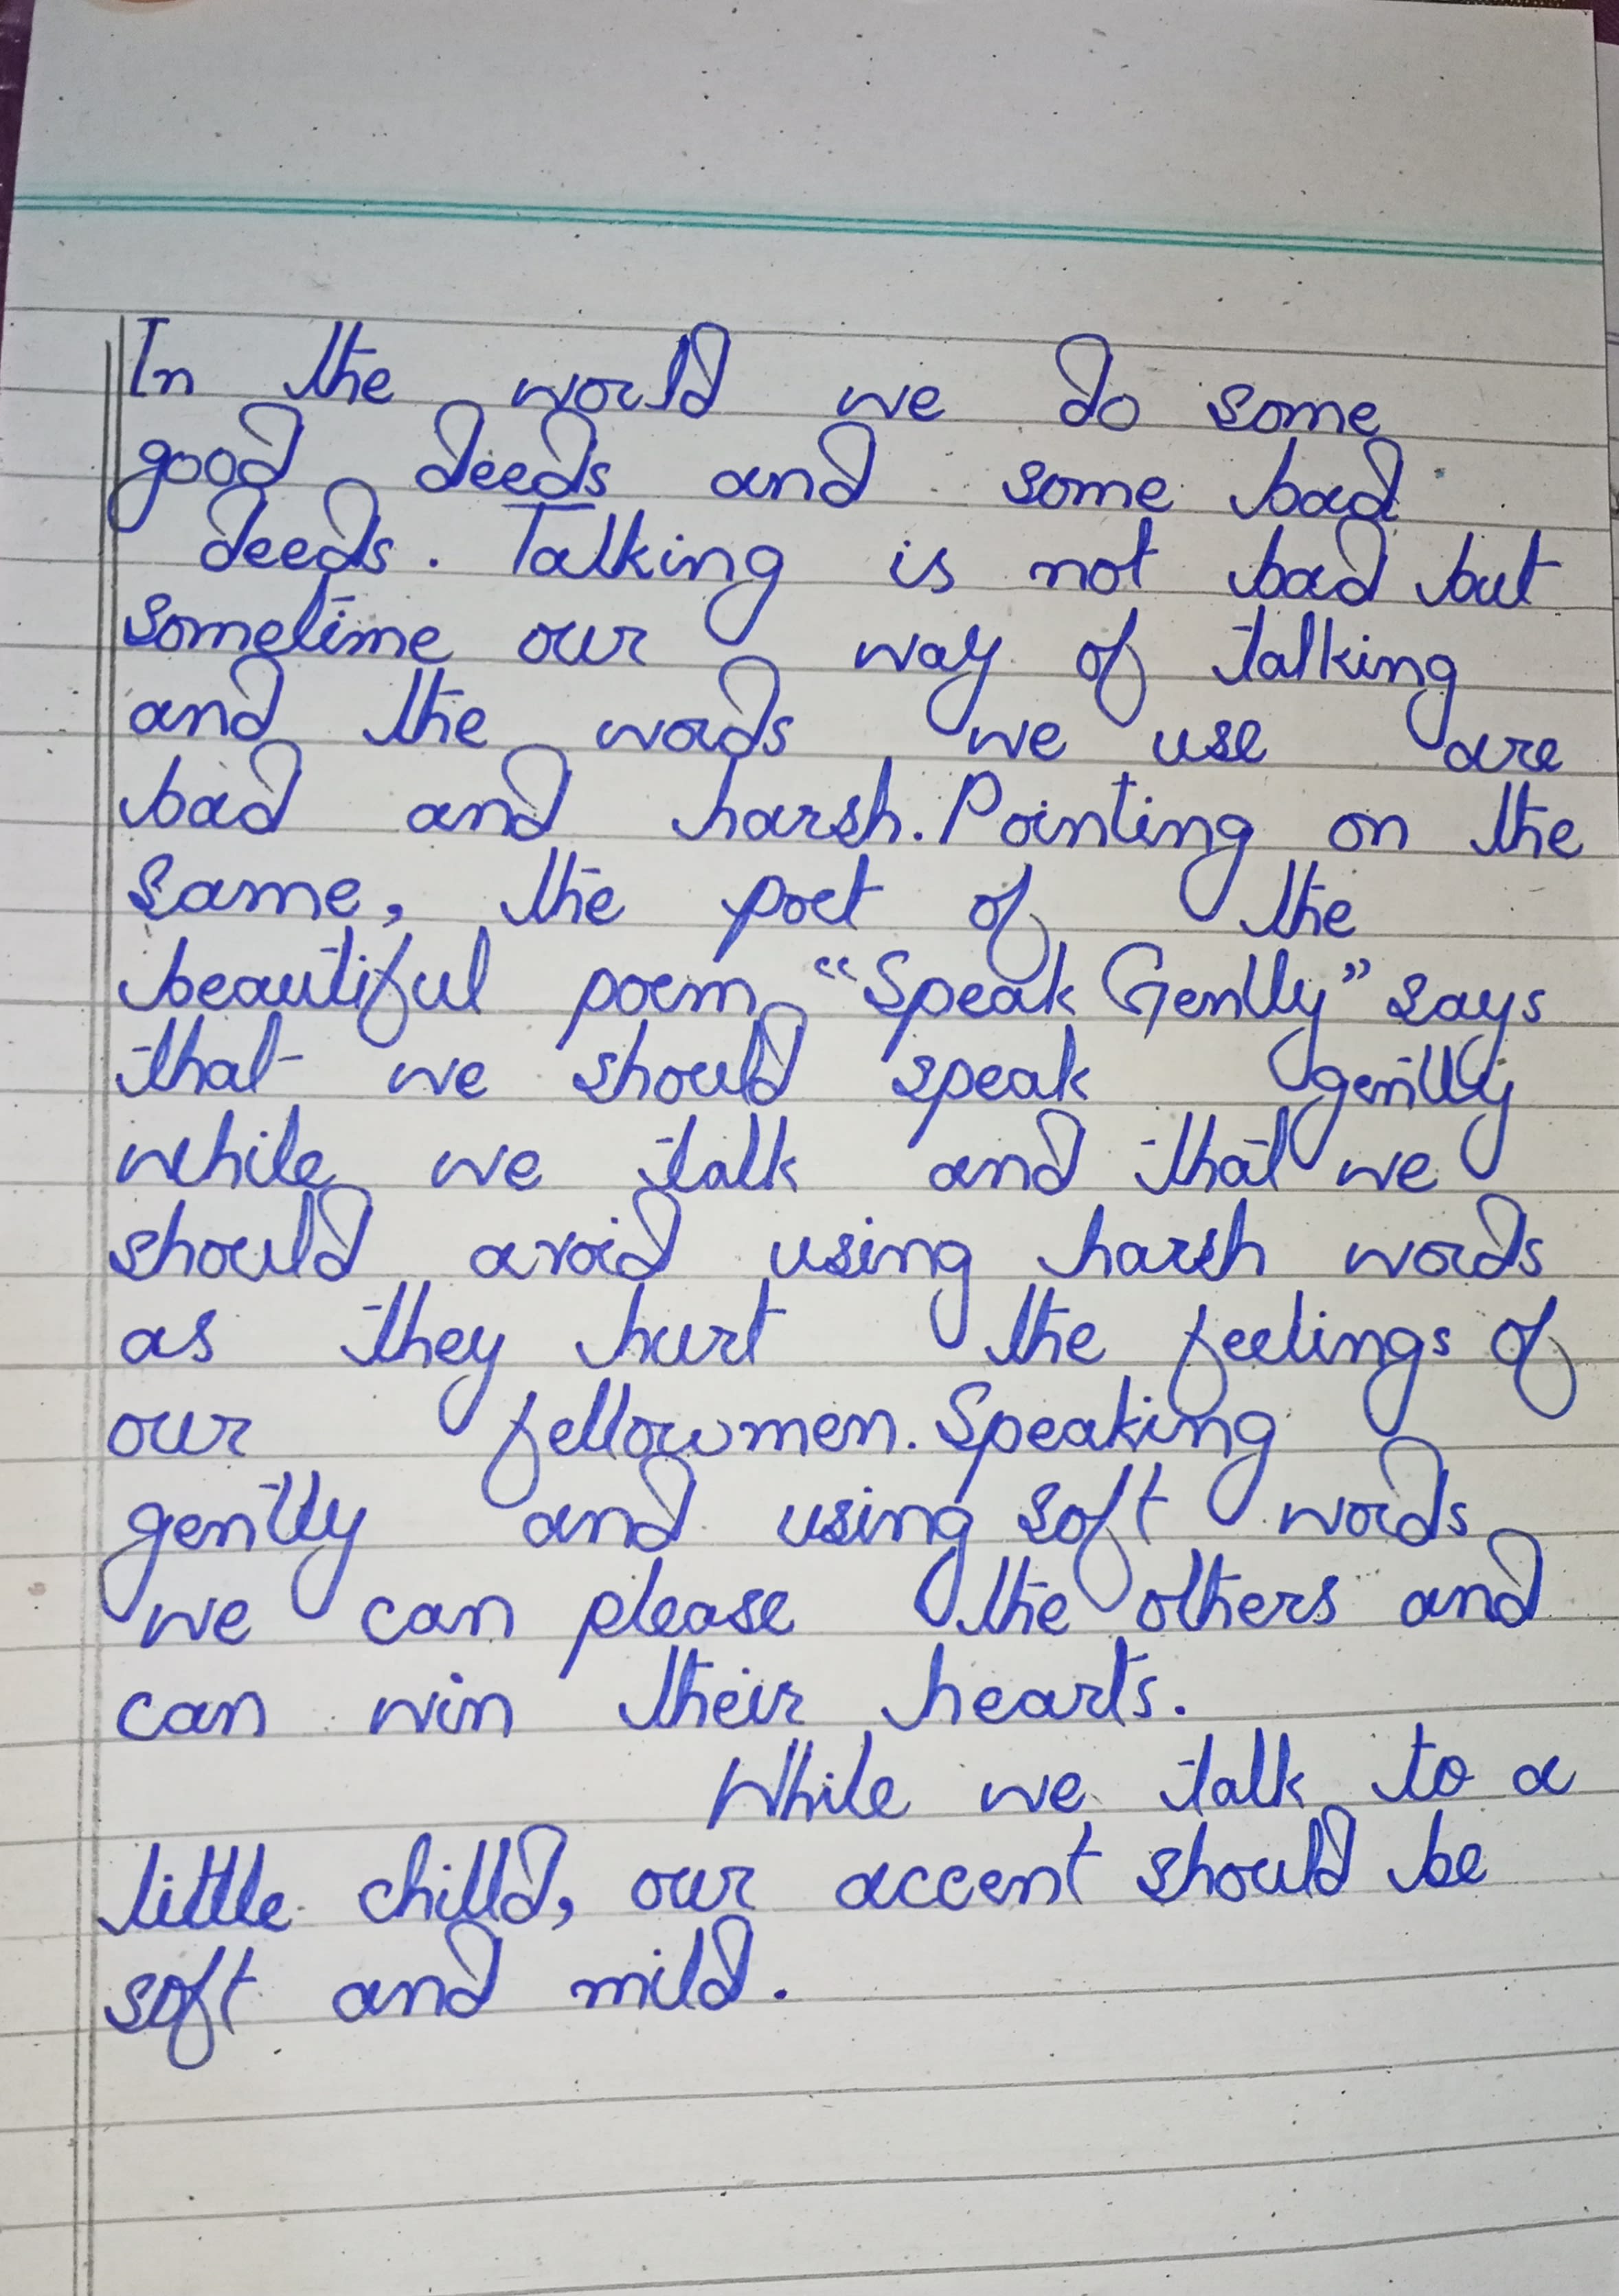 In the world we do some
good deeds and some bad
deeds. Talking is not bad but
sometime our way of talking
and the words we use are
bad and harsh. Pointing on the
same, the poet of the
beautiful poem "Speak Gently" says
that we should speak gently
while we talk and that we
should avoid using harsh words
as they hurt the feelings of
our fellowmen. Speaking
gently and using soft words
we can please the others and
can win their hearts.
While we talk to a
little chilld, our accent should be
soft and mild.